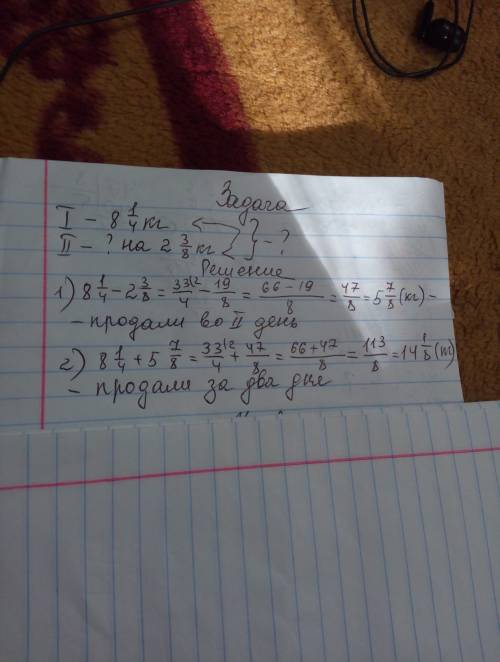 Задача
I – 8 1/4 кг
II – ? на 2 3/8 кг < } – ?
Решение
1) 8 1/4 – 2 3/8 = 33\2/4 – 19/8 = 66–19/8 = 47/8 = 5 7/8 (кг) –
– продали во II день
2) 8 1/4 + 5 7/8 = 33\2/4 + 47/8 = 66+47/8 = 113/8 = 14 1/8 (т)
– продали за два дня